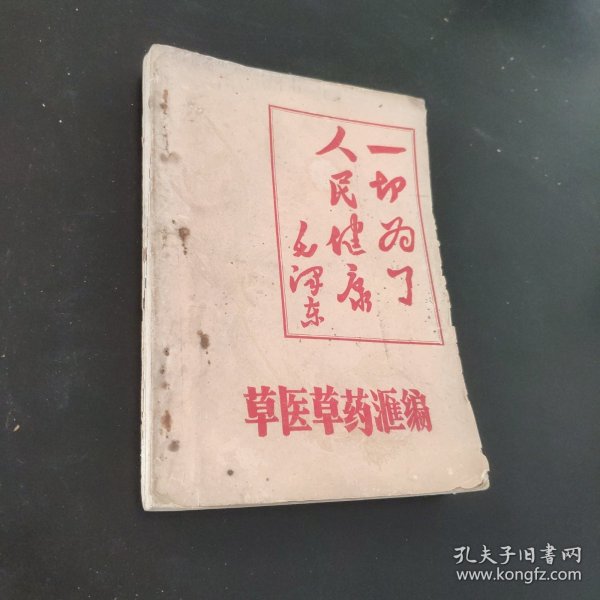 一切为了
人民健康
毛泽东
草医草药滙编
孔夫子旧书网
www.kongfz.com